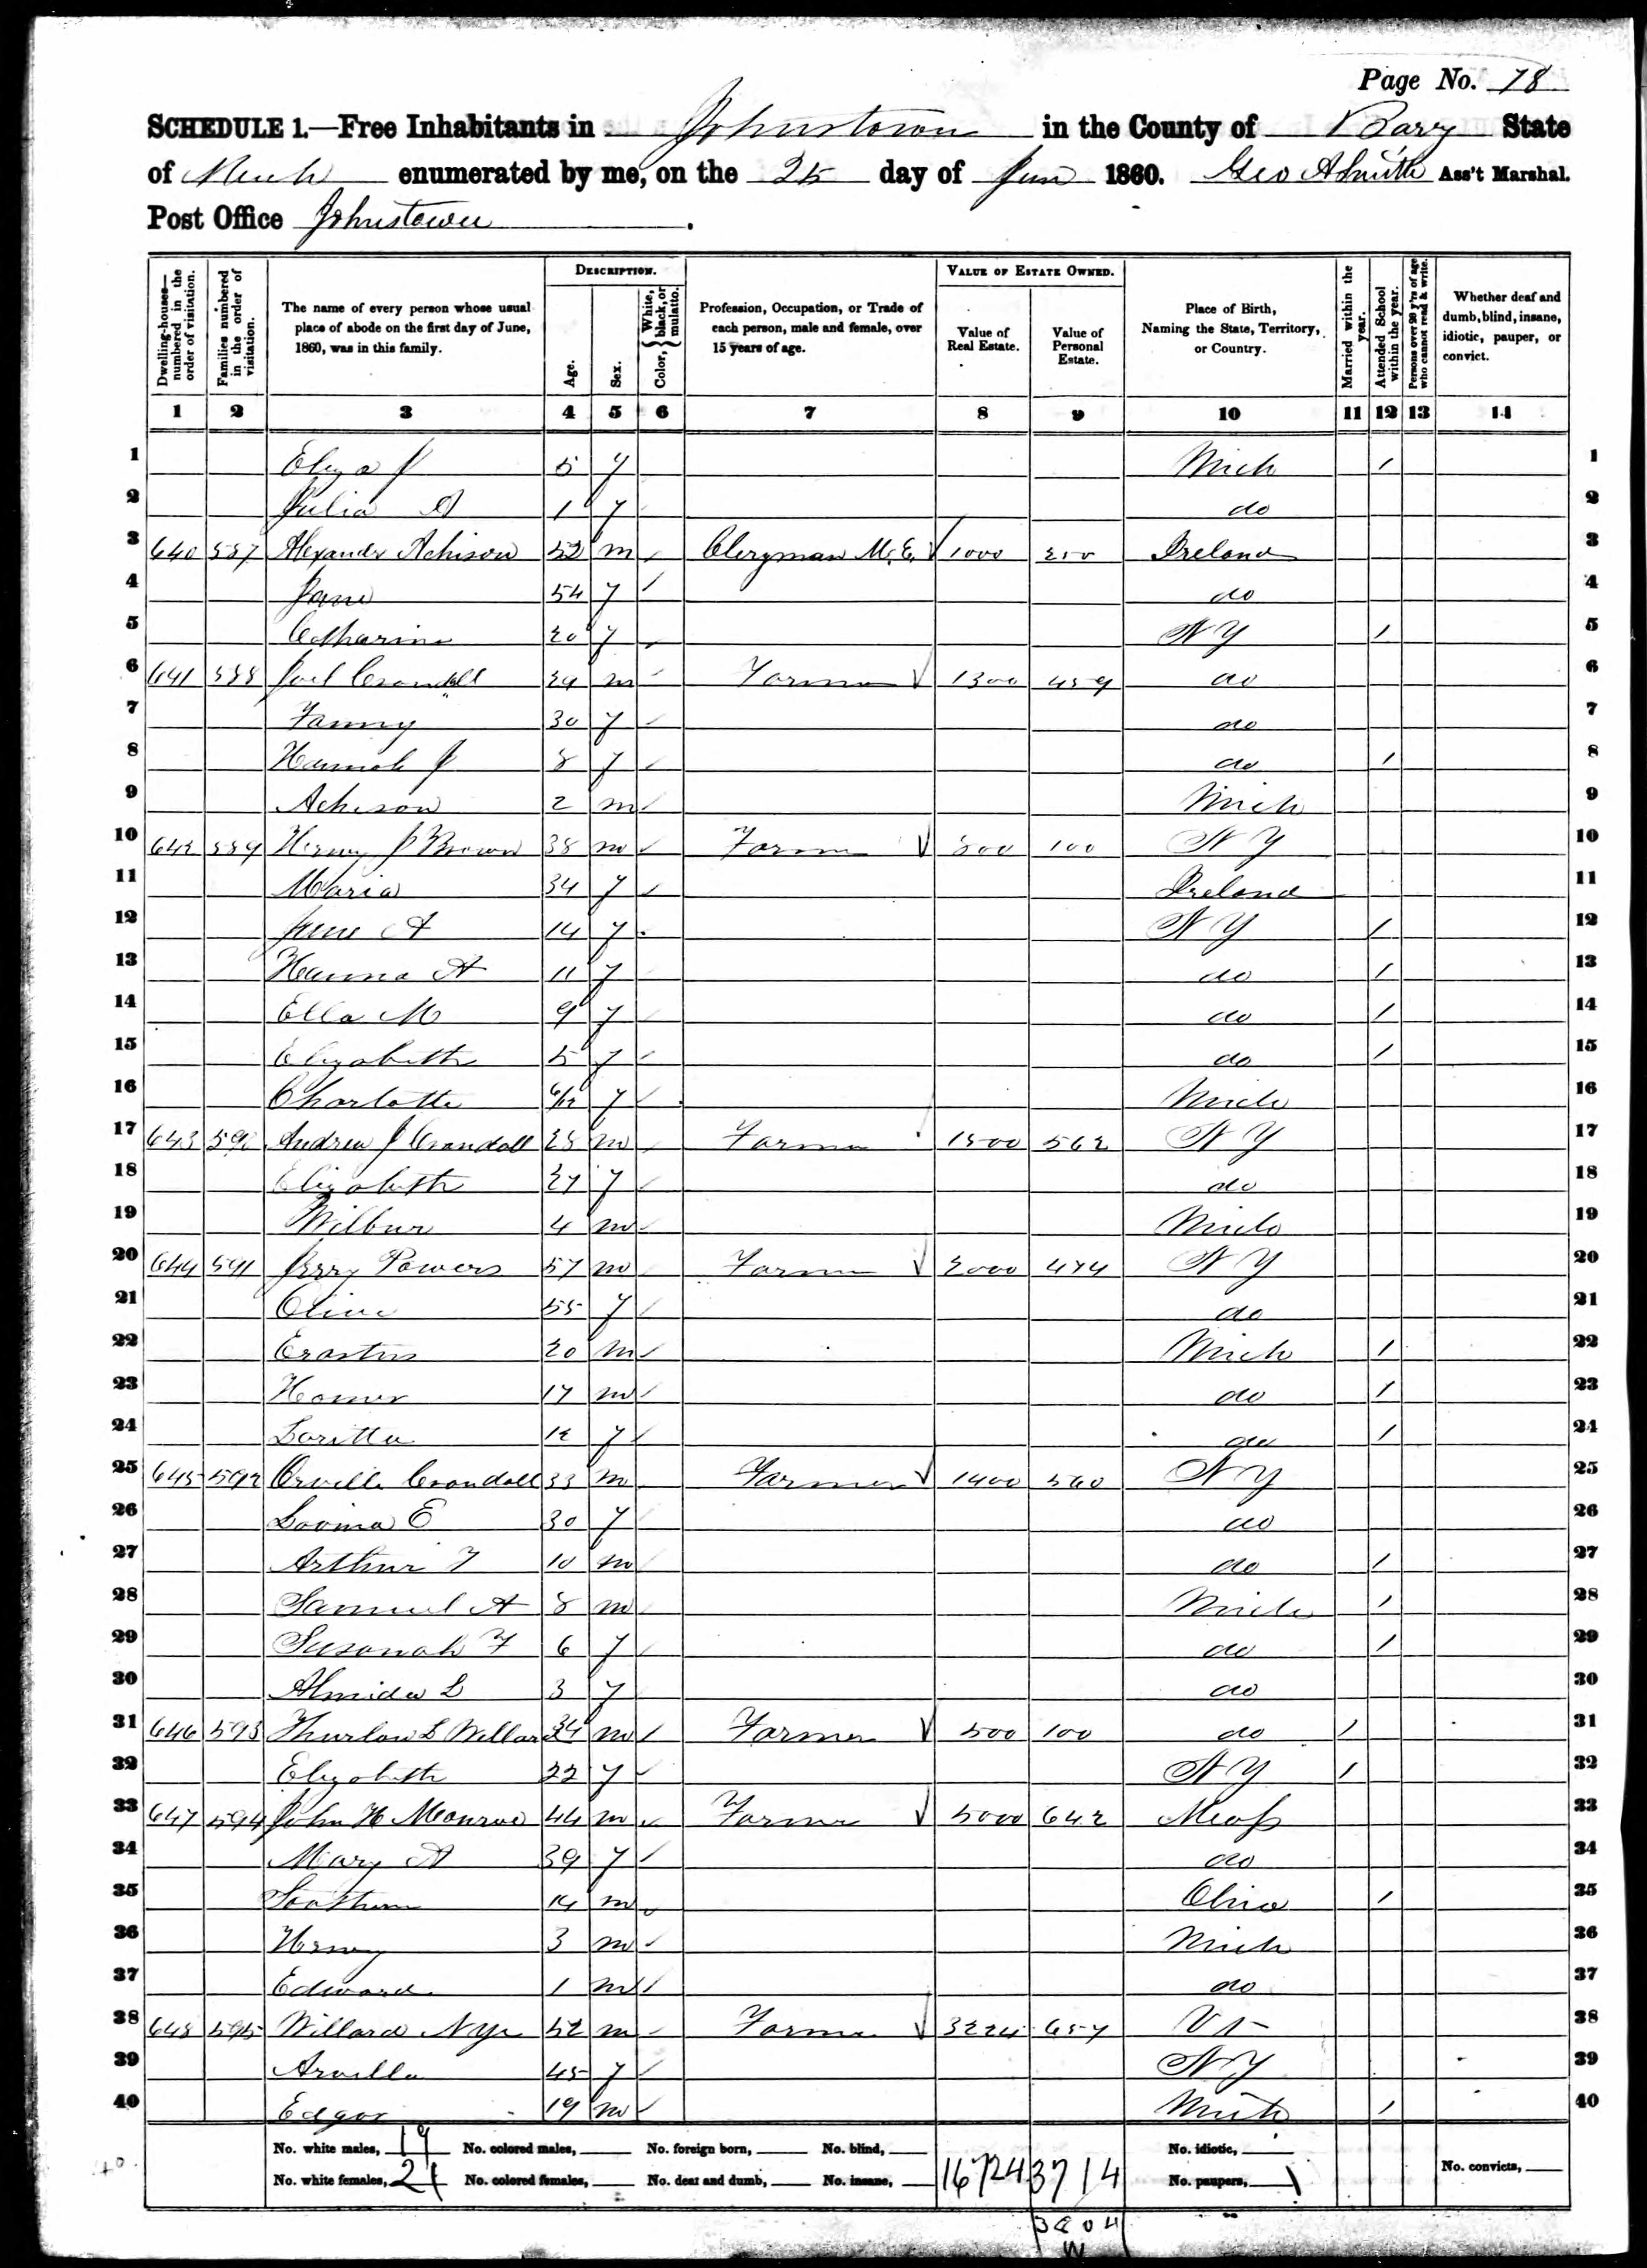 Page No. 78
SCHEDULE 1.—Free Inhabitants in Johnstown in the County of Barry State
of Mich enumerated by me, on the 25 day of Jun 1860. Geo A Smith Ass't Marshal.
Post Office Johnstown.
Dwelling-houses—numbered in the order of visitation. Families numbered in the order of visitation. The name of every person whose usual place of abode on the first day of June, 1860, was in this family. DESCRIPTION. Age. Sex. Color, {White, black, or mulatto. Profession, Occupation, or Trade of each person, male and female, over 15 years of age. VALUE OF ESTATE OWNED. Value of Real Estate. Value of Personal Estate. Place of Birth, Naming the State, Territory, or Country. Married within the year. Attended School within the year. Persons over 20 y'rs of age who cannot read & write. Whether deaf and dumb, blind, insane, idiotic, pauper, or convict.
1 2 3 4 5 6 7 8 9 10 11 12 13 14
1 Eliza J 5 f Mich / 1
2 Julia A 1 f do 2
3 640 587 Alexander Achison 52 m Clergyman M.E. 1000 250 Ireland 3
4 Jane 54 f do 4
5 Catharine 20 f N Y / 5
6 641 588 Joel Crandall 29 m Farmer 1300 459 do 6
7 Fanny 30 f do 7
8 Hannah J 8 f do / 8
9 Achison 2 m Mich 9
10 642 589 Henry J Brown 38 m Farmer 100 N Y 10
11 Maria 34 f Ireland 11
12 Jane A 14 f N Y / 12
13 Hanna A 11 f do / 13
14 Ella M 9 f do / 14
15 Elizabeth 5 f do / 15
16 Charlotte 6/12 f Mich 16
17 643 590 Andrew J Crandall 28 m Farmer 1500 562 N Y 17
18 Elizabeth 27 f do 18
19 Wilbur 4 m Mich 19
20 644 591 Jerry Powers 57 m Farmer 2000 474 N Y 20
21 Olive 55 f do 21
22 Erastus 20 m Mich / 22
23 Homer 17 m do / 23
24 Loritta 12 f do / 24
25 645 592 Orville Crandall 33 m Farmer 1400 560 N Y 25
26 Lovina E 30 f do 26
27 Arthur F 10 m do / 27
28 Samuel A 8 m Mich / 28
29 Susanah F 6 f do / 29
30 Almida L 3 f do 30
31 646 593 Thurlow L Willard 24 m Farmer 500 100 do / 31
32 Elizabeth 22 f N Y / 32
33 647 594 John H Monroe 44 m Farmer 5000 642 Mass 33
34 Mary A 39 f do 34
35 14 m Ohio / 35
36 Henry 3 m Mich 36
37 Edward 1 m do 37
38 648 595 Willard Nye 52 m Farmer 3224 657 Vt 38
39 Arvilla 45 f N Y 39
40 Edgar 19 m Mich / 40
No. white males, 19 No. colored males, No. foreign born, No. blind, No. idiotic,
No. white females, 21 No. colored females, No. deaf and dumb, No. insane, 16724 3714 No. paupers, No. convicts,